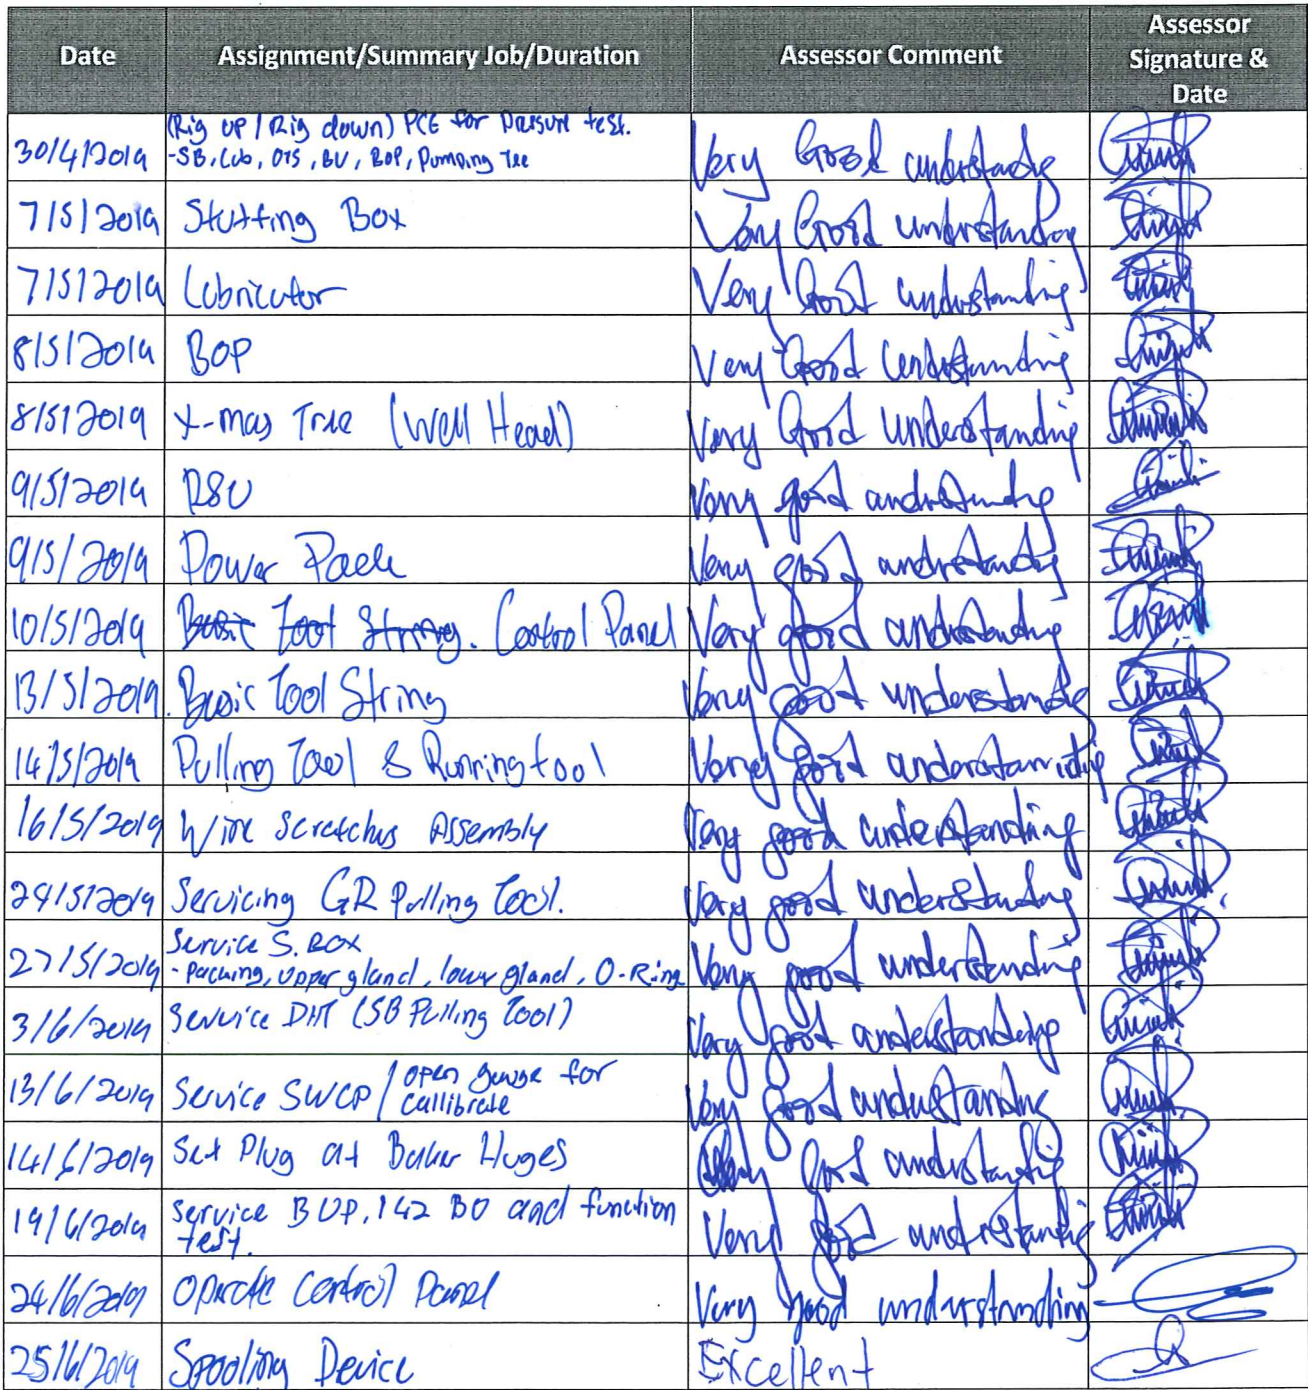 Date Assignment/Summary Job/Duration Assessor Comment Assessor Signature & Date
30/4/2019 (Rig up / Rig down) PCE for Pressure test. Very Good understanding
-SB, Lub, OTS, BU, BOP, Pumping Tee
7/5/2019 Stuffing Box Very Good understanding
7/5/2019 Lubricator Very Good understanding
8/5/2019 BOP Very Good understanding
8/5/2019 X-mas Tree (Well Head) Very Good Understanding
9/5/2019 RSU Very good understanding
9/5/2019 Power Pack Very good understanding
10/5/2019 Basic Tool String. Control Panel Very good understanding
13/5/2019. Basic Tool String Very good understanding
14/5/2019 Pulling Tool & Running tool Very good understanding
16/5/2019 Wire Scratchus Assembly Very good understanding
24/5/2019 Servicing GR Pulling Tool. Very good understanding
27/5/2019 Service S. BOX Very good understanding
- Packing, Upper gland, lower gland, O-Ring
3/6/2019 Service DHT (SB Pulling Tool) Very good understanding
13/6/2019 Service SWCP / open gauge for callibrate Very good understanding
14/6/2019 Set Plug at Baker Huges Very good understanding
19/6/2019 Service BOP, 142 BO and function Very good understanding
test.
24/6/2019 Operate Control Panel Very good understanding
25/6/2019 Spooling Device Excellent